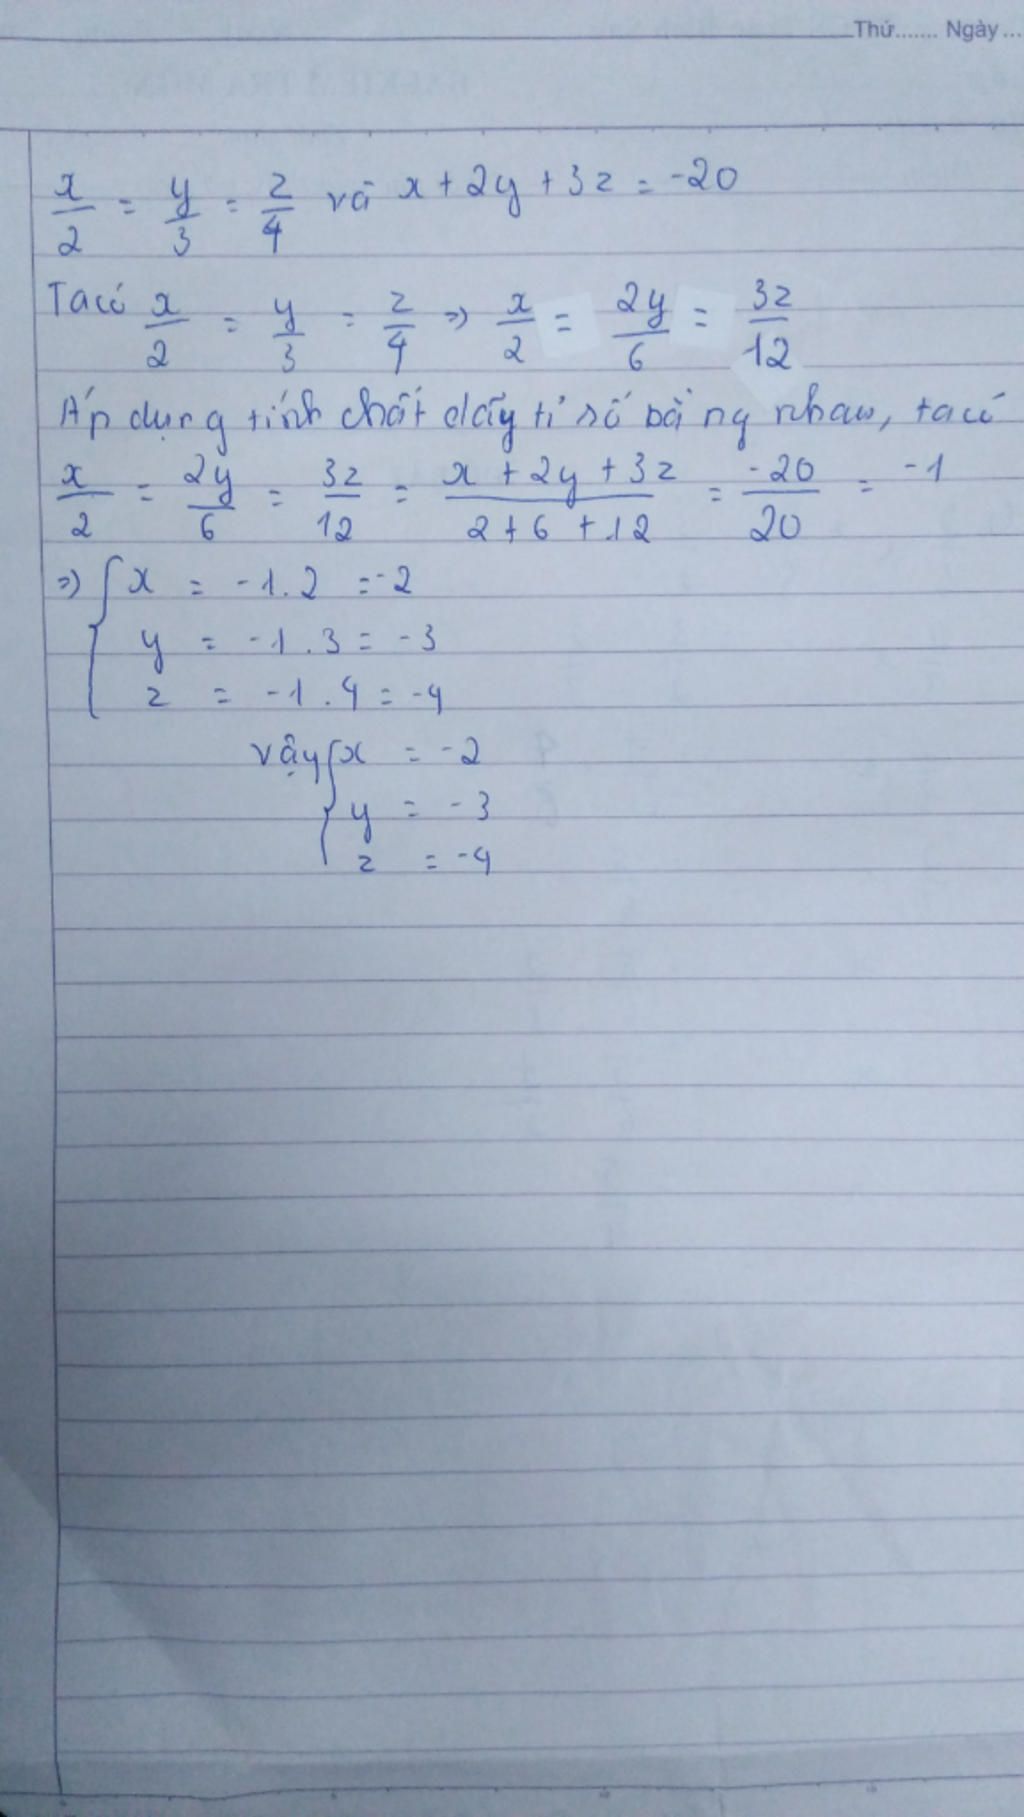 Thứ....... Ngày...
x/2 = y/3 = z/4 và x + 2y + 3z = -20
Ta có x/2 = y/3 = z/4 => x/2 = 2y/6 = 3z/12
Áp dụng tính chất dãy tỉ số bằng nhau, ta có
x/2 = 2y/6 = 3z/12 = (x + 2y + 3z)/(2 + 6 + 12) = -20/20 = -1
=> { x = -1.2 = -2
y = -1.3 = -3
z = -1.4 = -4
vậy { x = -2
y = -3
z = -4